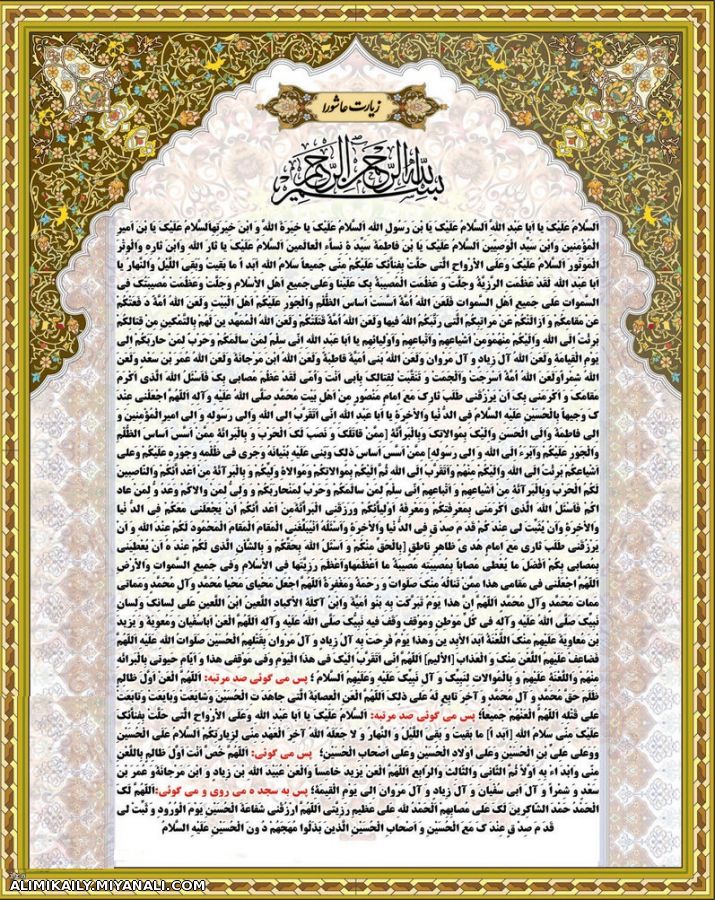 زیارت عاشورا
بسم الله الرحمن الرحیم
اَلسَّلامُ عَلَیْکَ یا اَبا عَبْدِ اللهِ اَلسَّلامُ عَلَیْکَ یَا بْنَ رَسُولِ اللهِ اَلسَّلامُ عَلَیْکَ یا خِیَرَةَ اللهِ وَ ابْنَ خِیَرَتِهِاَلسَّلامُ عَلَیْکَ یَا بْنَ اَمیرِ
الْمُؤْمِنینَ وَابْنَ سَیِّدِ الْوَصِیّینَ اَلسَّلامُ عَلَیْکَ یَا بْنَ فاطِمَةَ سَیِّدَ ةِ نِساَّءِ الْعالَمینَ اَلسَّلامُ عَلَیْکَ یا ثارَ اللهِ وَابْنَ ثارِهِ وَالْوِتْرَ
الْمَوْتُورَ اَلسَّلامُ عَلَیْکَ وَعَلَی الاَْرْواحِ الَّتی حَلَّتْ بِفِناَّئِکَ عَلَیْکُمْ مِنّی جَمیعاً سَلامُ اللهِ اَبَد اً ما بَقیتُ وَبَقِیَ اللَّیْلُ وَالنَّهارُ یا
اَبا عَبْدِ اللهِ لَقَدْ عَظُمَتِ الرَّزِیَّةُ وَجَلَّتْ وَ عَظُمَتِ الْمُصیبَةُ بِکَ عَلَیْنا وَعَلی‌جَمیعِ اَهْلِ الاِْسْلامِ وَجَلَّتْ وَعَظُمَتْ مُصیبَتُکَ فِی
السَّمواتِ عَلی جَمیعِ اَهْلِ السَّمواتِ فَلَعَنَ اللهُ اُمَّةً اَسَّسَتْ اَساسَ الظُّلْمِ وَالْجَوْرِ عَلَیْکُمْ اَهْلَ الْبَیْتِ وَلَعَنَ اللهُ اُمَّةً دَ فَعَتْکُمْ
عَنْ مَقامِکُمْ وَ اَزالَتْکُمْ عَنْ مَراتِبِکُمُ الَّتی رَتَّبَکُمُ اللهُ فیها وَلَعَنَ اللهُ اُمَّةً قَتَلَتْکُمْ وَلَعَنَ اللهُ الْمُمَهِّدینَ لَهُمْ بِالتَّمْکینِ مِنْ قِتالِکُمْ
بَرِئْتُ اِلَی اللهِ وَاِلَیْکُمْ مِنْهُمْ‌وَمِنْ اَشْیاعِهِمْ وَاَتْباعِهِمْ وَاَوْلِیائِهِم یا اَبا عَبْدِ اللهِ اِنّی سِلْمٌ لِمَنْ سالَمَکُمْ وَحَرْبٌ لِمَنْ حارَبَکُمْ اِلی
یَوْمِ الْقِیامَةِ وَلَعَنَ اللهُ آلَ زِیادٍ وَ آلَ مَرْوانَ وَلَعَنَ اللهُ بَنی اُمَیَّةَ قاطِبَةً وَلَعَنَ اللهُ ابْنَ مَرْجانَةَ وَلَعَنَ اللهُ عُمَرَ بْنَ سَعْدٍ وَلَعَنَ
اللهُ شِمْراًوَلَعَنَ اللهُ اُمَّةً اَسْرَجَتْ وَاَلْجَمَتْ وَ تَنَقَّبَتْ لِقِتالِکَ بِاَبی اَنْتَ وَاُمّی لَقَدْ عَظُمَ مُصابی بِکَ فَاَسْئَلُ اللهَ الَّذی اَکْرَمَ
مَقامَکَ وَ اَکْرَمَنی بِکَ اَنْ یَرْزُقَنی طَلَبَ ثارِکَ مَعَ اِمامٍ مَنْصُورٍ مِنْ اَهْلِ بَیْتِ مُحَمَّدٍ صَلَّی اللهُ عَلَیْهِ وَآلِهِ اَللّهُمَّ اجْعَلْنی عِنْدَ
کَ وَجیهاً بِالْحُسَیْنِ عَلَیْهِ السَّلامُ فِی الدُّ نْیا وَالاْخِرَةِ یا اَبا عَبْدِ اللهِ اِنّی اَتَقَرَّبُ اِلی اللهِ وَاِلی رَسُولِهِ وَ اِلی امیرِالْمُؤْمِنینَ وَ
اِلی فاطِمَةَ وَاِلَی الْحَسَنِ وَاِلَیْکَ بِمُوالاتِکَ وَبِالْبَراَّئَةِ [مِمَّنْ قاتَلَکَ وَ نَصَبَ لَکَ الْحَرْبَ وَ بِالْبَرائَةِ مِمَّنْ اَسَّسَ اَساسَ الظُّلْمِ
وَالْجَوْرِ عَلَیْکُمْ وَاَبْرَءُ اِلَی اللهِ وَ اِلی رَسُولِهِ] مِمَّنْ اَسَّسَ اَساسَ ذلِکَ وَبَنی عَلَیْهِ بُنْیانَهُ وَجَری فی ظُلْمِهِ وَجَوْرِهِ عَلَیْکُمْ وَعَلی
اَشْیاعِکُمْ بَرِئْتُ اِلَی اللهِ وَاِلَیْکُمْ مِنْهُمْ وَاَتَقَرَّبُ اِلَی اللهِ ثُمَّ اِلَیْکُمْ بِمُوالاتِکُمْ وَمُوالاةِ وَلِیِّکُمْ وَ بِالْبَرآئَةِ مِنْ اَعْد آئِکُمْ وَالنّاصِبینَ
لَکُمُ الْحَرْبَ وَبِالْبَرآئَةِ مِنْ اَشْیاعِهِمْ وَ اَتْباعِهِمْ اِنّی سِلْمٌ لِمَنْ سالَمَکُمْ وَحَرْبٌ لِمَنْ‌حارَبَکُمْ وَ وَلِیٌّ لِمَنْ والاکُمْ وَعَدُ وٌّ لِمَنْ عاد
اکُمْ فَاَسْئَلُ اللهَ الَّذی اَکْرَمَنی بِمَعْرِفَتِکُمْ وَمَعْرِفَةِ اَوْلِیآئِکُمْ وَرَزَقَنِی الْبَرآئَةَمِنْ اَعْد آئِکُمْ اَنْ یَجْعَلَنی مَعَکُمْ فِی الدُّ نْیا
وَالاْخِرَةِ وَاَنْ یُثَبِّتَ لی عِنْدَ کُمْ قَدَ مَ صِدْ قٍ فِی الدُّ نْیا وَالاْخِرَةِ وَاَسْئَلُهُ اَنْ‌یُبَلِّغَنِی الْمَقامَ الْمَقامَ الْمَحْمُودَ لَکُمْ عِنْدَ اللهِ وَ اَنْ
یَرْزُقَنی طَلَبَ ثاری مَعَ اِمامٍ هُدیً ظاهِرٍ ناطِقٍ [بِالْحَقِّ مِنْکُمْ وَ اَسْئَلُ اللهَ بِحَقِّکُمْ وَ بِالشَّاْنِ الَّذی لَکُمْ عِنْدَ هُ اَنْ یُعْطِیَنی
بِمُصابی بِکُمْ اَفْضَلَ ما یُعْطی مُصاباً بِمُصیبَتِهِ مُصیبَةً ما اَعْظَمَهاوَاَعْظَمَ رَزِیَّتَها فِی الاِْسْلامِ وَفی جَمیعِ السَّمواتِ وَالاَْرْضِ
اَللّهُمَّ اجْعَلْنی فی مَقامی هذا مِمَّنْ تَنالُهُ مِنْکَ صَلَواتٌ وَ رَحْمَةٌ وَمَغْفِرَةٌ اَللّهُمَّ اجْعَلْ مَحْیایَ مَحْیا مُحَمَّدٍ وَآلِ مُحَمَّدٍ وَمَماتی
مَماتَ مُحَمَّدٍ وَآلِ مُحَمَّدٍ اَللّهُمَّ اِنَّ هذا یَوْمٌ تَبَرَّکَتْ بِهِ بَنُو اُمَیَّةَ وَابْنُ آکِلَةِ الاَْکْبادِ اللَّعینُ ابْنُ اللَّعینِ عَلی لِسانِکَ وَلِسانِ
نَبِیِّکَ صَلَّی اللهُ عَلَیْهِ وَآلِهِ فی کُلِّ مَوْطِنٍ وَمَوْقِفٍ وَقَفَ فیهِ نَبِیُّکَ صَلَّی اللهُ عَلَیْهِ وَآلِهِ اَللّهُمَّ الْعَنْ اَباسُفْیانَ وَمُعوِیَةَ وَ یَزیدَ
بْنَ مُعاوِیَةَ عَلَیْهِمْ مِنْکَ اللَّعْنَةُ اَبَدَ الاْبِدینَ وَهذا یَوْمٌ فَرِحَتْ بِهِ آلُ زِیادٍ وَ آلُ مَرْوانَ بِقَتْلِهِمُ الْحُسَیْنَ صَلَواتُ اللهِ عَلَیْهِ اَللّهُمَّ
فَضاعِفْ عَلَیْهِمُ اللَّعْنَ مِنْکَ وَ الْعَذابَ [الاَْلیمَ] اَللّهُمَّ اِنّی اَتَقَرَّبُ اِلَیْکَ فی هذَا الْیَوْمِ وَفی مَوْقِفی هذا وَ اَیّامِ حَیوتی بِالْبَرائَةِ
مِنْهُمْ وَاللَّعْنَةِ عَلَیْهِمْ وَ بِالْمُوالاتِ لِنَبِیِّکَ وَ آلِ نَبِیِّکَ عَلَیْهِ وَعَلَیْهِمُ اَلسَّلامُ ؛ پس می گوئی صد مرتبه: اَللّهُمَّ الْعَنْ اَوَّلَ ظالِمٍ
ظَلَمَ حَقَّ مُحَمَّدٍ وَ آلِ مُحَمَّدٍ وَ آخِرَ تابِعٍ لَهُ عَلی ذلِکَ اَللّهُمَّ الْعَنِ الْعِصابَةَ الَّتی جاهَدَ تِ الْحُسَیْنَ وَشایَعَتْ وَبایَعَتْ وَتابَعَتْ
عَلی قَتْلِهِ اَللّهُمَّ الْعَنْهُمْ جَمیعاً؛ پس می گوئی صد مرتبه: اَلسَّلامُ عَلَیْکَ یا اَبا عَبْدِ اللهِ وَعَلَی الاَْرْواحِ الَّتی حَلَّتْ بِفِنائِکَ
عَلَیْکَ مِنّی سَلامُ اللهِ [اَبَد اً] ما بَقیتُ وَ بَقِیَ اللَّیْلُ وَ النَّهارُ وَ لا جَعَلَهُ اللهُ آخِرَ الْعَهْدِ مِنّی لِزِیارَتِکُمْ اَلسَّلامُ عَلَی الْحُسَیْنِ
ووعَلی عَلِیِّ بْنِ الْحُسَیْنِ وَعَلی اَوْلادِ الْحُسَیْنِ وَعَلی اَصْحابِ الْحُسَیْنِ؛ پس می گوئی: اَللّهُمَّ خُصَّ اَنْتَ اَوَّلَ ظالِمٍ بِاللَّعْنِ
مِنّی وَابْدَ اءْ بِهِ اَوَّلاً ثُمَّ الثّانی وَالثّالِثَ وَالرّابِعَ اَللّهُمَّ الْعَنْ یَزیدَ خامِساً وَالْعَنْ عُبَیْدَ اللهِ بْنَ زِیادٍ وَ ابْنَ مَرْجانَةَوَ عُمَرَ بْنَ
سَعْدٍ وَ شِمْراً وَ آلَ اَبی سُفْیانَ وَ آلَ زِیادٍ وَ آلَ مَرْوانَ اِلی یَوْمِ الْقِیمَةِ؛ پس به سجد ه می روی و می گوئی:اَللّهُمَّ لَکَ
الْحَمْدُ حَمْدَ الشّاکِرینَ لَکَ عَلی مُصابِهِمْ اَلْحَمْدُ للهِ عَلی عَظیمِ رَزِیَّتی اَللّهُمَّ ارْزُقْنی شَفاعَةَ الْحُسَیْنِ یَوْمَ الْوُرُودِ وَ ثَبِّتْ لی
قَدَ مَ صِدْ قٍ عِنْدَ کَ مَعَ الْحُسَیْنِ وَ اَصْحابِ الْحُسَیْنِ الَّذینَ بَذَلُوا مُهَجَهُمْ دُ ونَ الْحُسَیْنِ عَلَیْهِ السَّلامُ
ALIMIKAILY.MIYANALI.COM